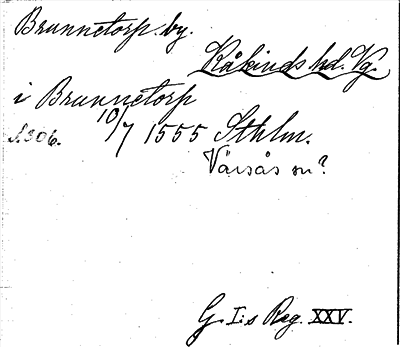 Brunnetorp. by.
Kåkinds hd. Vg.
i Brunnetorp
S.306. 10/7 1555 Sthlm.
Värsås sn?
G. I:s Reg. XXV.